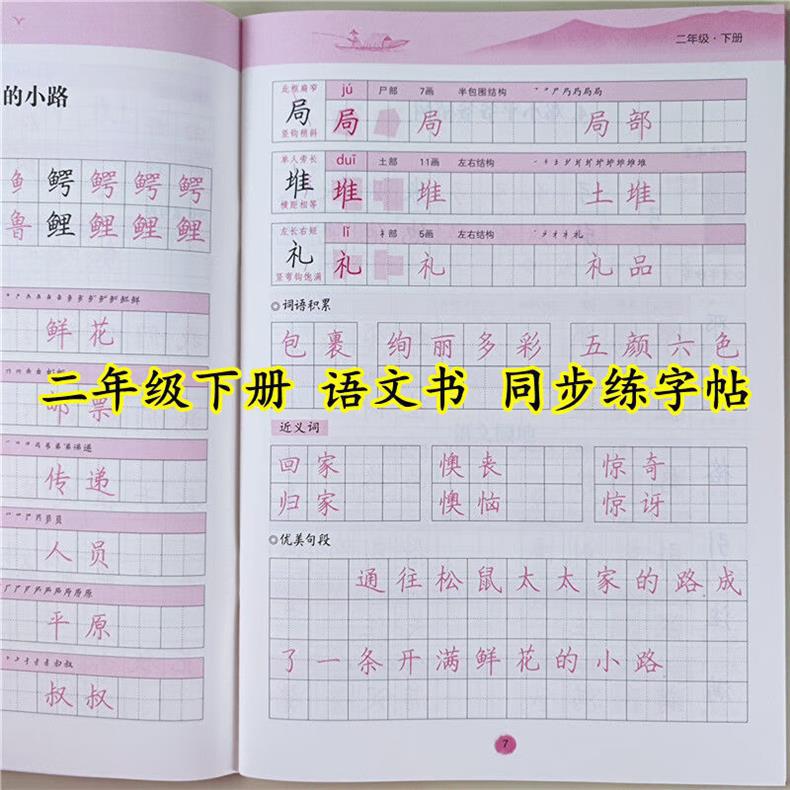 的小路
鱼 鳄 鳄 鳄 鳄
鲁 鲤 鲤 鲤 鲤
鲜花
邮票
传递
人员
平原
叔叔
二年级·下册
此框扁窄 jú 尸部 7画 半包围结构
局 局 局 局部
竖钩稍斜
单人旁长 duī 土部 11画 左右结构
堆 堆 堆 土堆
横距相等
左长右短 lǐ 礻部 5画 左右结构
礼 礼 礼 礼品
竖弯钩饱满
词语积累
包裹 绚丽多彩 五颜六色
二年级下册 语文书 同步练字帖
近义词
回家 懊丧 惊奇
归家 懊恼 惊讶
优美句段
通往松鼠太太家的路成
了一条开满鲜花的小路
7